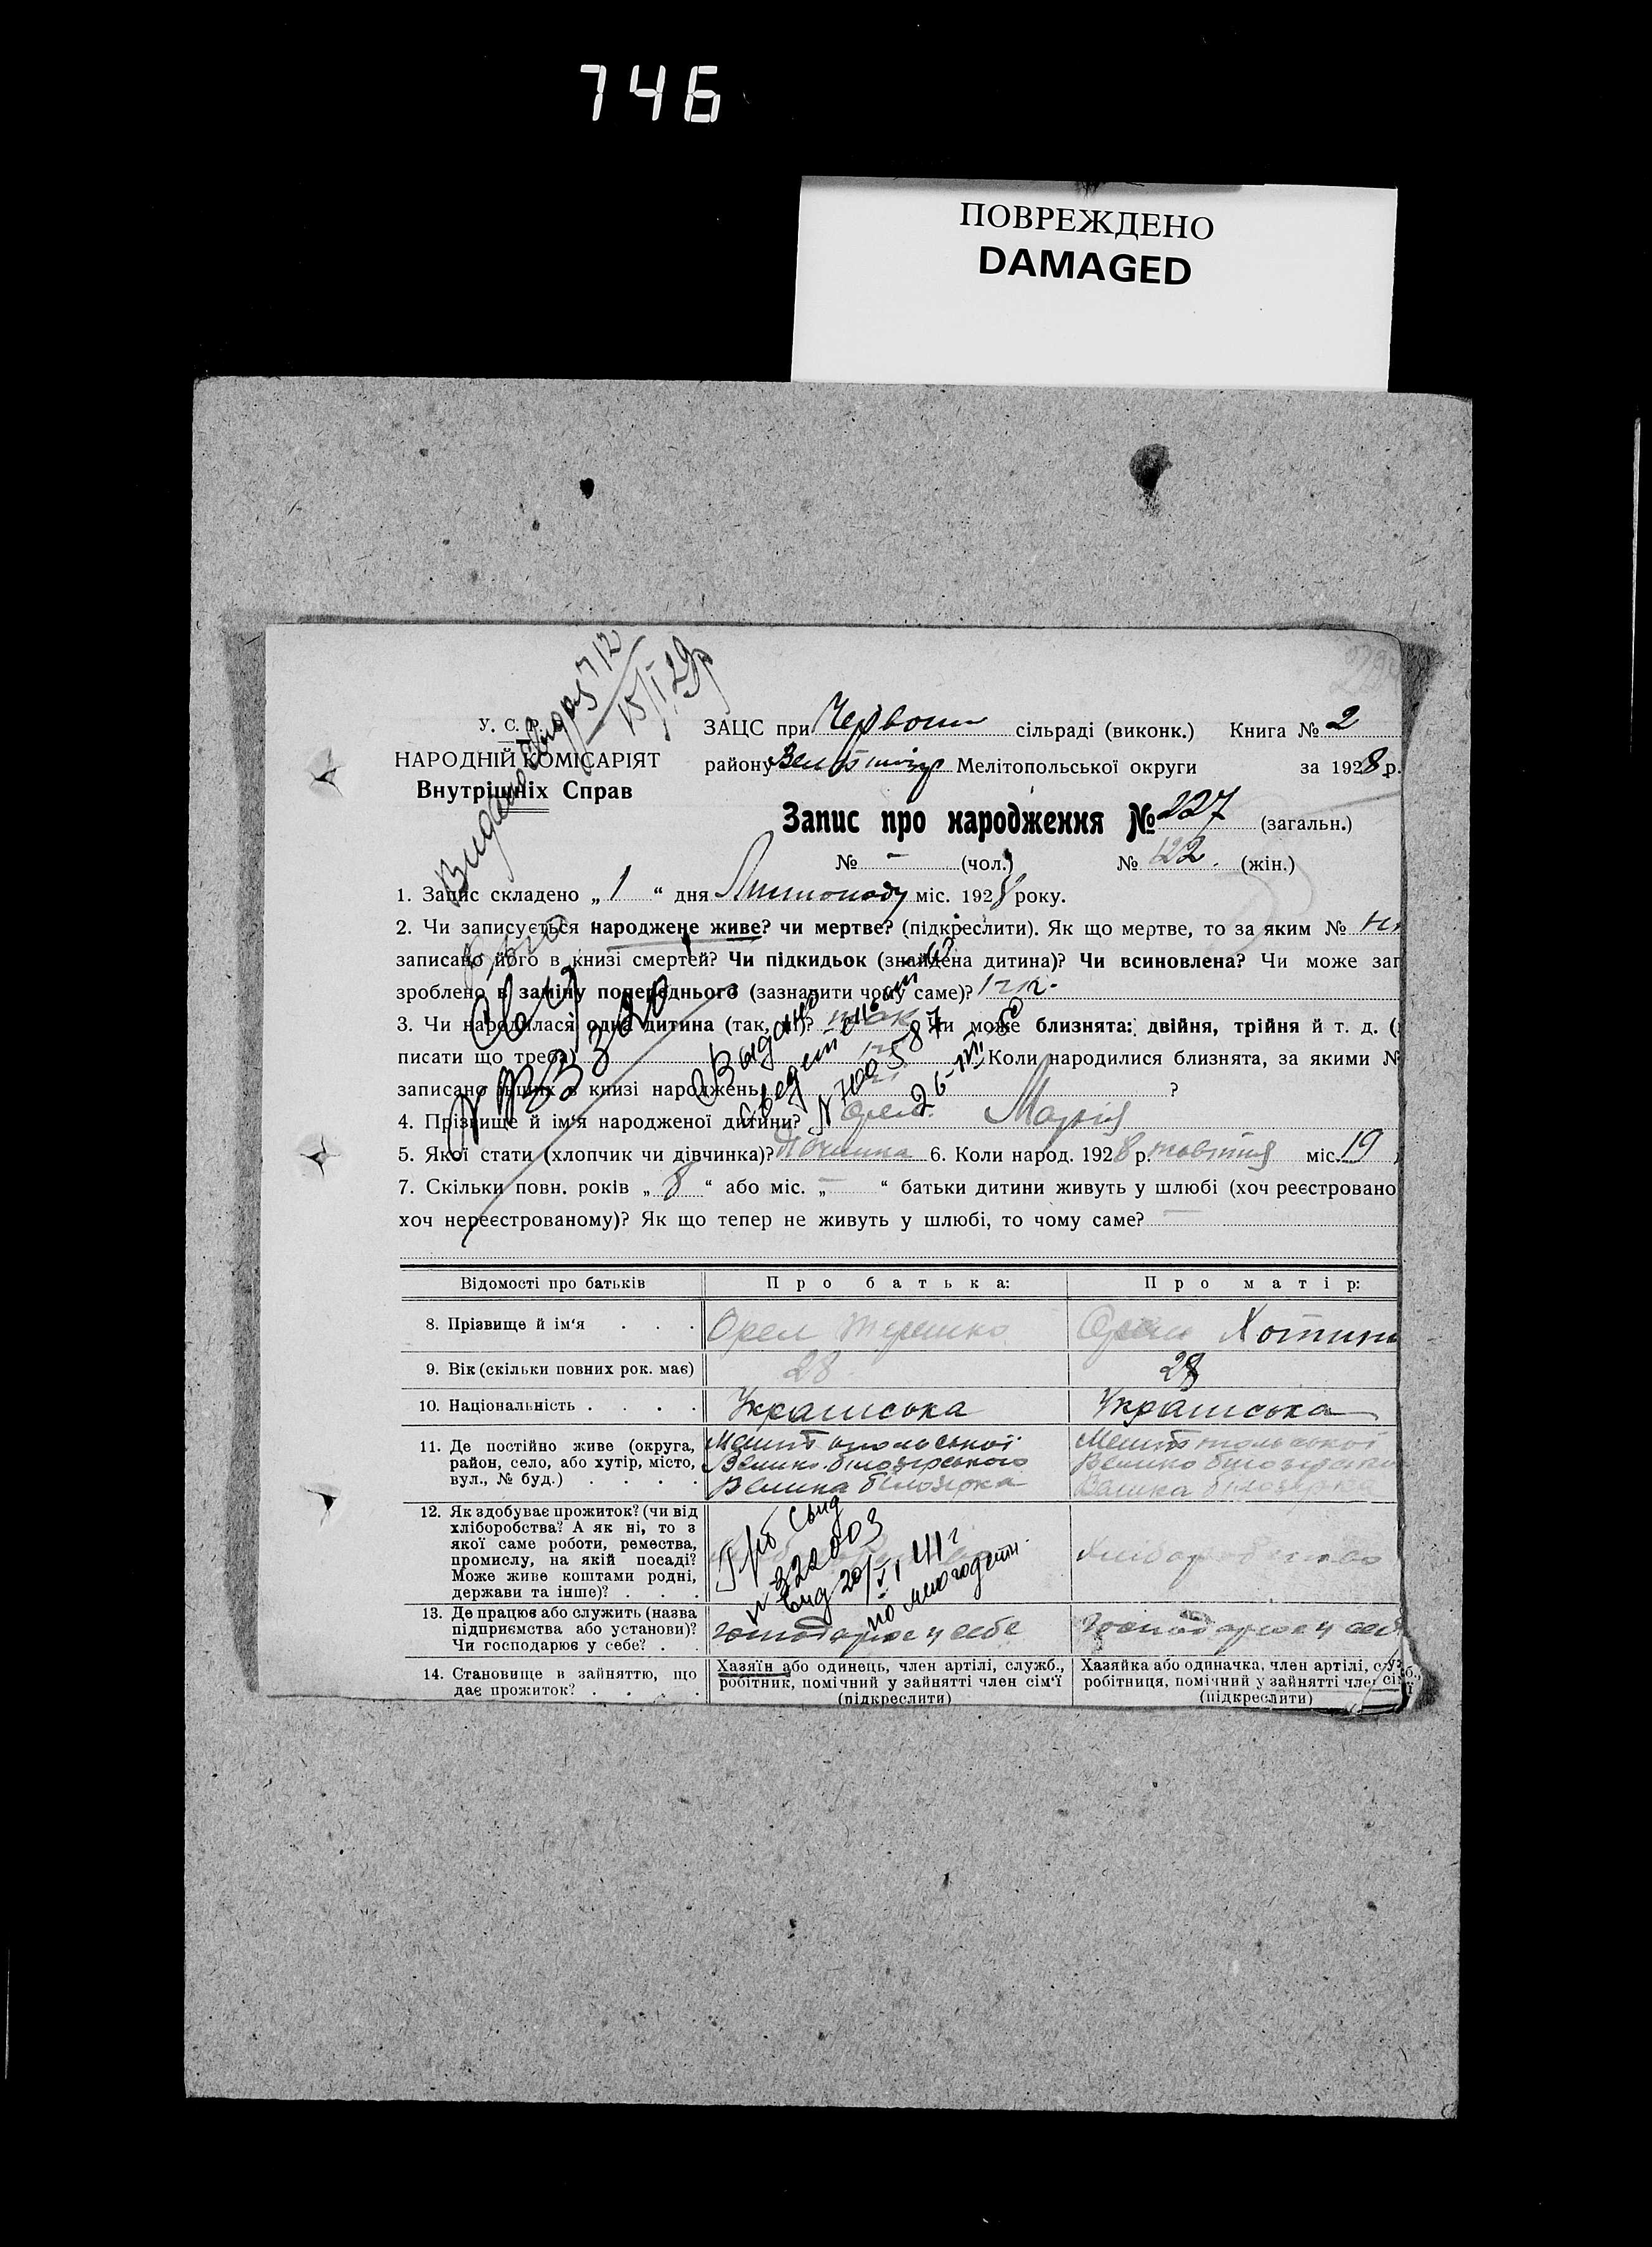 746
ПОВРЕЖДЕНО
DAMAGED
У. С. Р.
НАРОДНІЙ КОМІСАРІЯТ
Внутрішніх Справ
15/I 29р
ЗАЦС при Червон сільраді (виконк.) Книга № 2
району Мелітопольської округи за 1928 р.
Запис про народження № 227 (загальн.)
№ - (чол.) № 122. (жін.)
1. Запис складено „ 1 “ дня Листопаду міс. 1928 року.
2. Чи записується народжене живе? чи мертве? (підкреслити). Як що мертве, то за яким №
записано його в книзі смертей? Чи підкидьок (знайдена дитина)? Чи всиновлена? Чи може заг
зроблено в заміну попереднього (зазначити чому саме)?
3. Чи народилася одна дитина (так, ні)? так Чи може близнята: двійня, трійня й т. д. (
писати що треба) Коли народилися близнята, за якими №
записано інших в книзі народжень ?
4. Прізвище й ім‘я народженої дитини? Орел. Марія
5. Якої стати (хлопчик чи дівчинка)? Дівчинка 6. Коли народ. 1928 р. жовтня міс. 19
7. Скільки повн. років „ 8 “ або міс. „ — “ батьки дитини живуть у шлюбі (хоч реєстровано
хоч нереєстрованому)? Як що тепер не живуть у шлюбі, то чому саме? —
Выдано
свидет
26-VII 50
Відомості про батьків Про батька: Про матір:
8. Прізвище й ім‘я . . . Орел Терешко Орел
9. Вік (скільки повних рок. має) 28 28
10. Національність . . . . Українська Українська
11. Де постійно живе (округа, Мелітопольської Мелітопольської
район, село, або хутір, місто, Велико-білозірського Велико білозірського
вул., № буд.) . . . . Велика білозірка Велика білозірка
12. Як здобуває прожиток? (чи від
хліборобства? А як ні, то з
якої саме роботи, ремества,
промислу, на якій посаді? Хліборобство
Може живе коштами родні,
держави та інше)? . . .
Свид
№ 322003
20/VI 41 г
по многодетн.
13. Де працює або служить (назва
підприємства або установи)? Господарює у себе Господарює у себе
Чи господарює у себе? . .
14. Становище в зайняттю, що
дає прожиток? . . . .
Хазяїн або одинець, член артілі, служб.,
робітник, помічний у зайнятті член сім‘ї
(підкреслити)
Хазяйка або одиначка, член артілі, служб.,
робітниця, помічний у зайнятті член сім‘ї
(підкреслити)